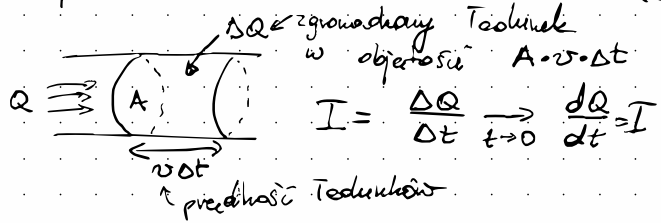 ΔQ zgromadzony ładunek
w objętości A·v·Δt
Q
A
I = ΔQ/Δt →(t→0) dQ/dt = I
vΔt
prędkość ładunków